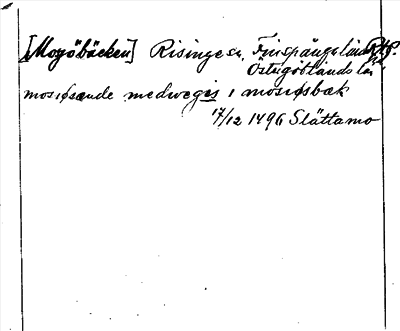 [Mogöbäcken] Risinge sn, Finspånga länds hd.
Östergötlands län
mosiøsænde medwegis i mosiøsbæk
17/12 1496 Slättamo